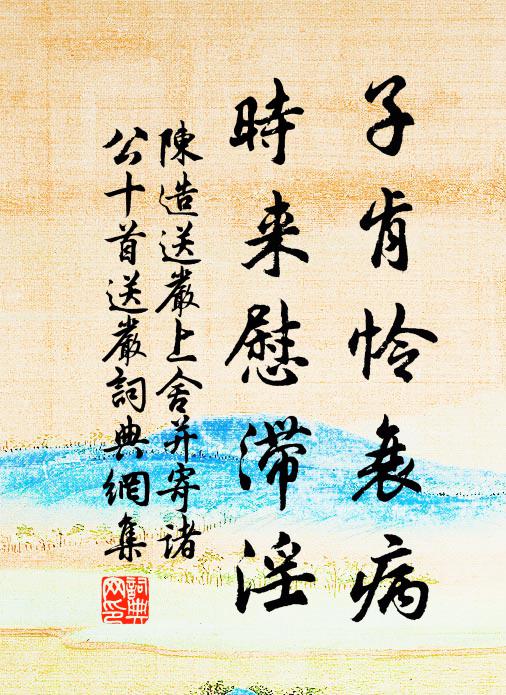 子肯怜衰病
時来慰滞淫
陳造送嚴上舍并寄諸
公十首送嚴詞典網集
詞典